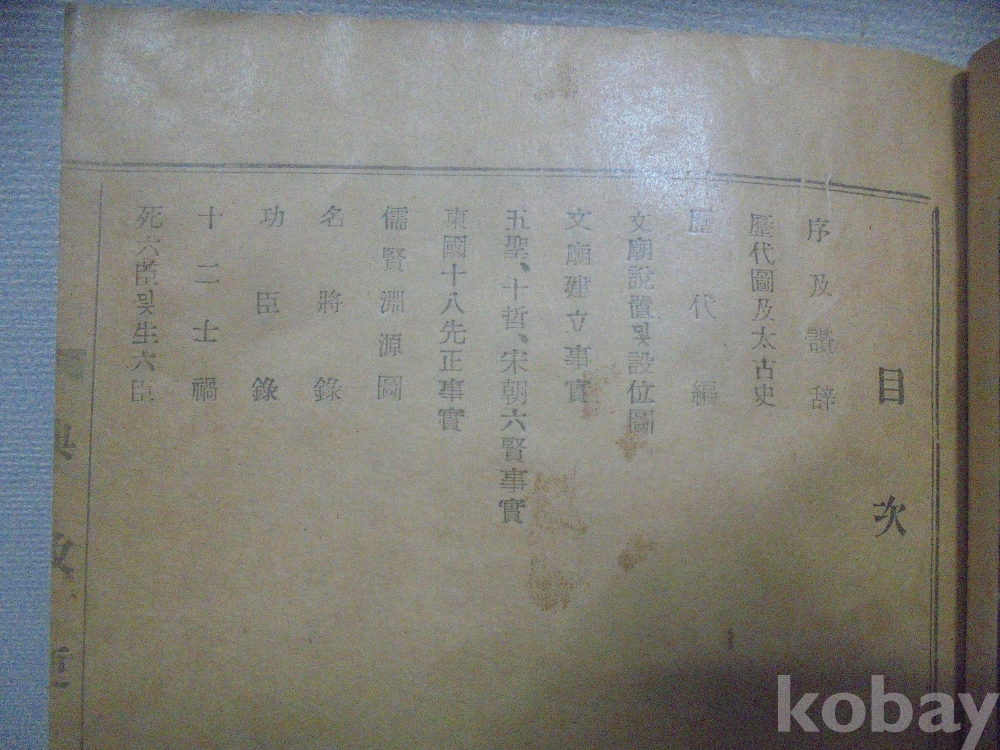 目次
序及讚辞
歷代圖及太古史
歷代編
文廟說置및設位圖
文廟建立事實
五聖、十哲、宋朝六賢事實
東國十八先正事實
儒賢淵源圖
名將錄
功臣錄
十二士禍
死六臣및生六臣
kobay